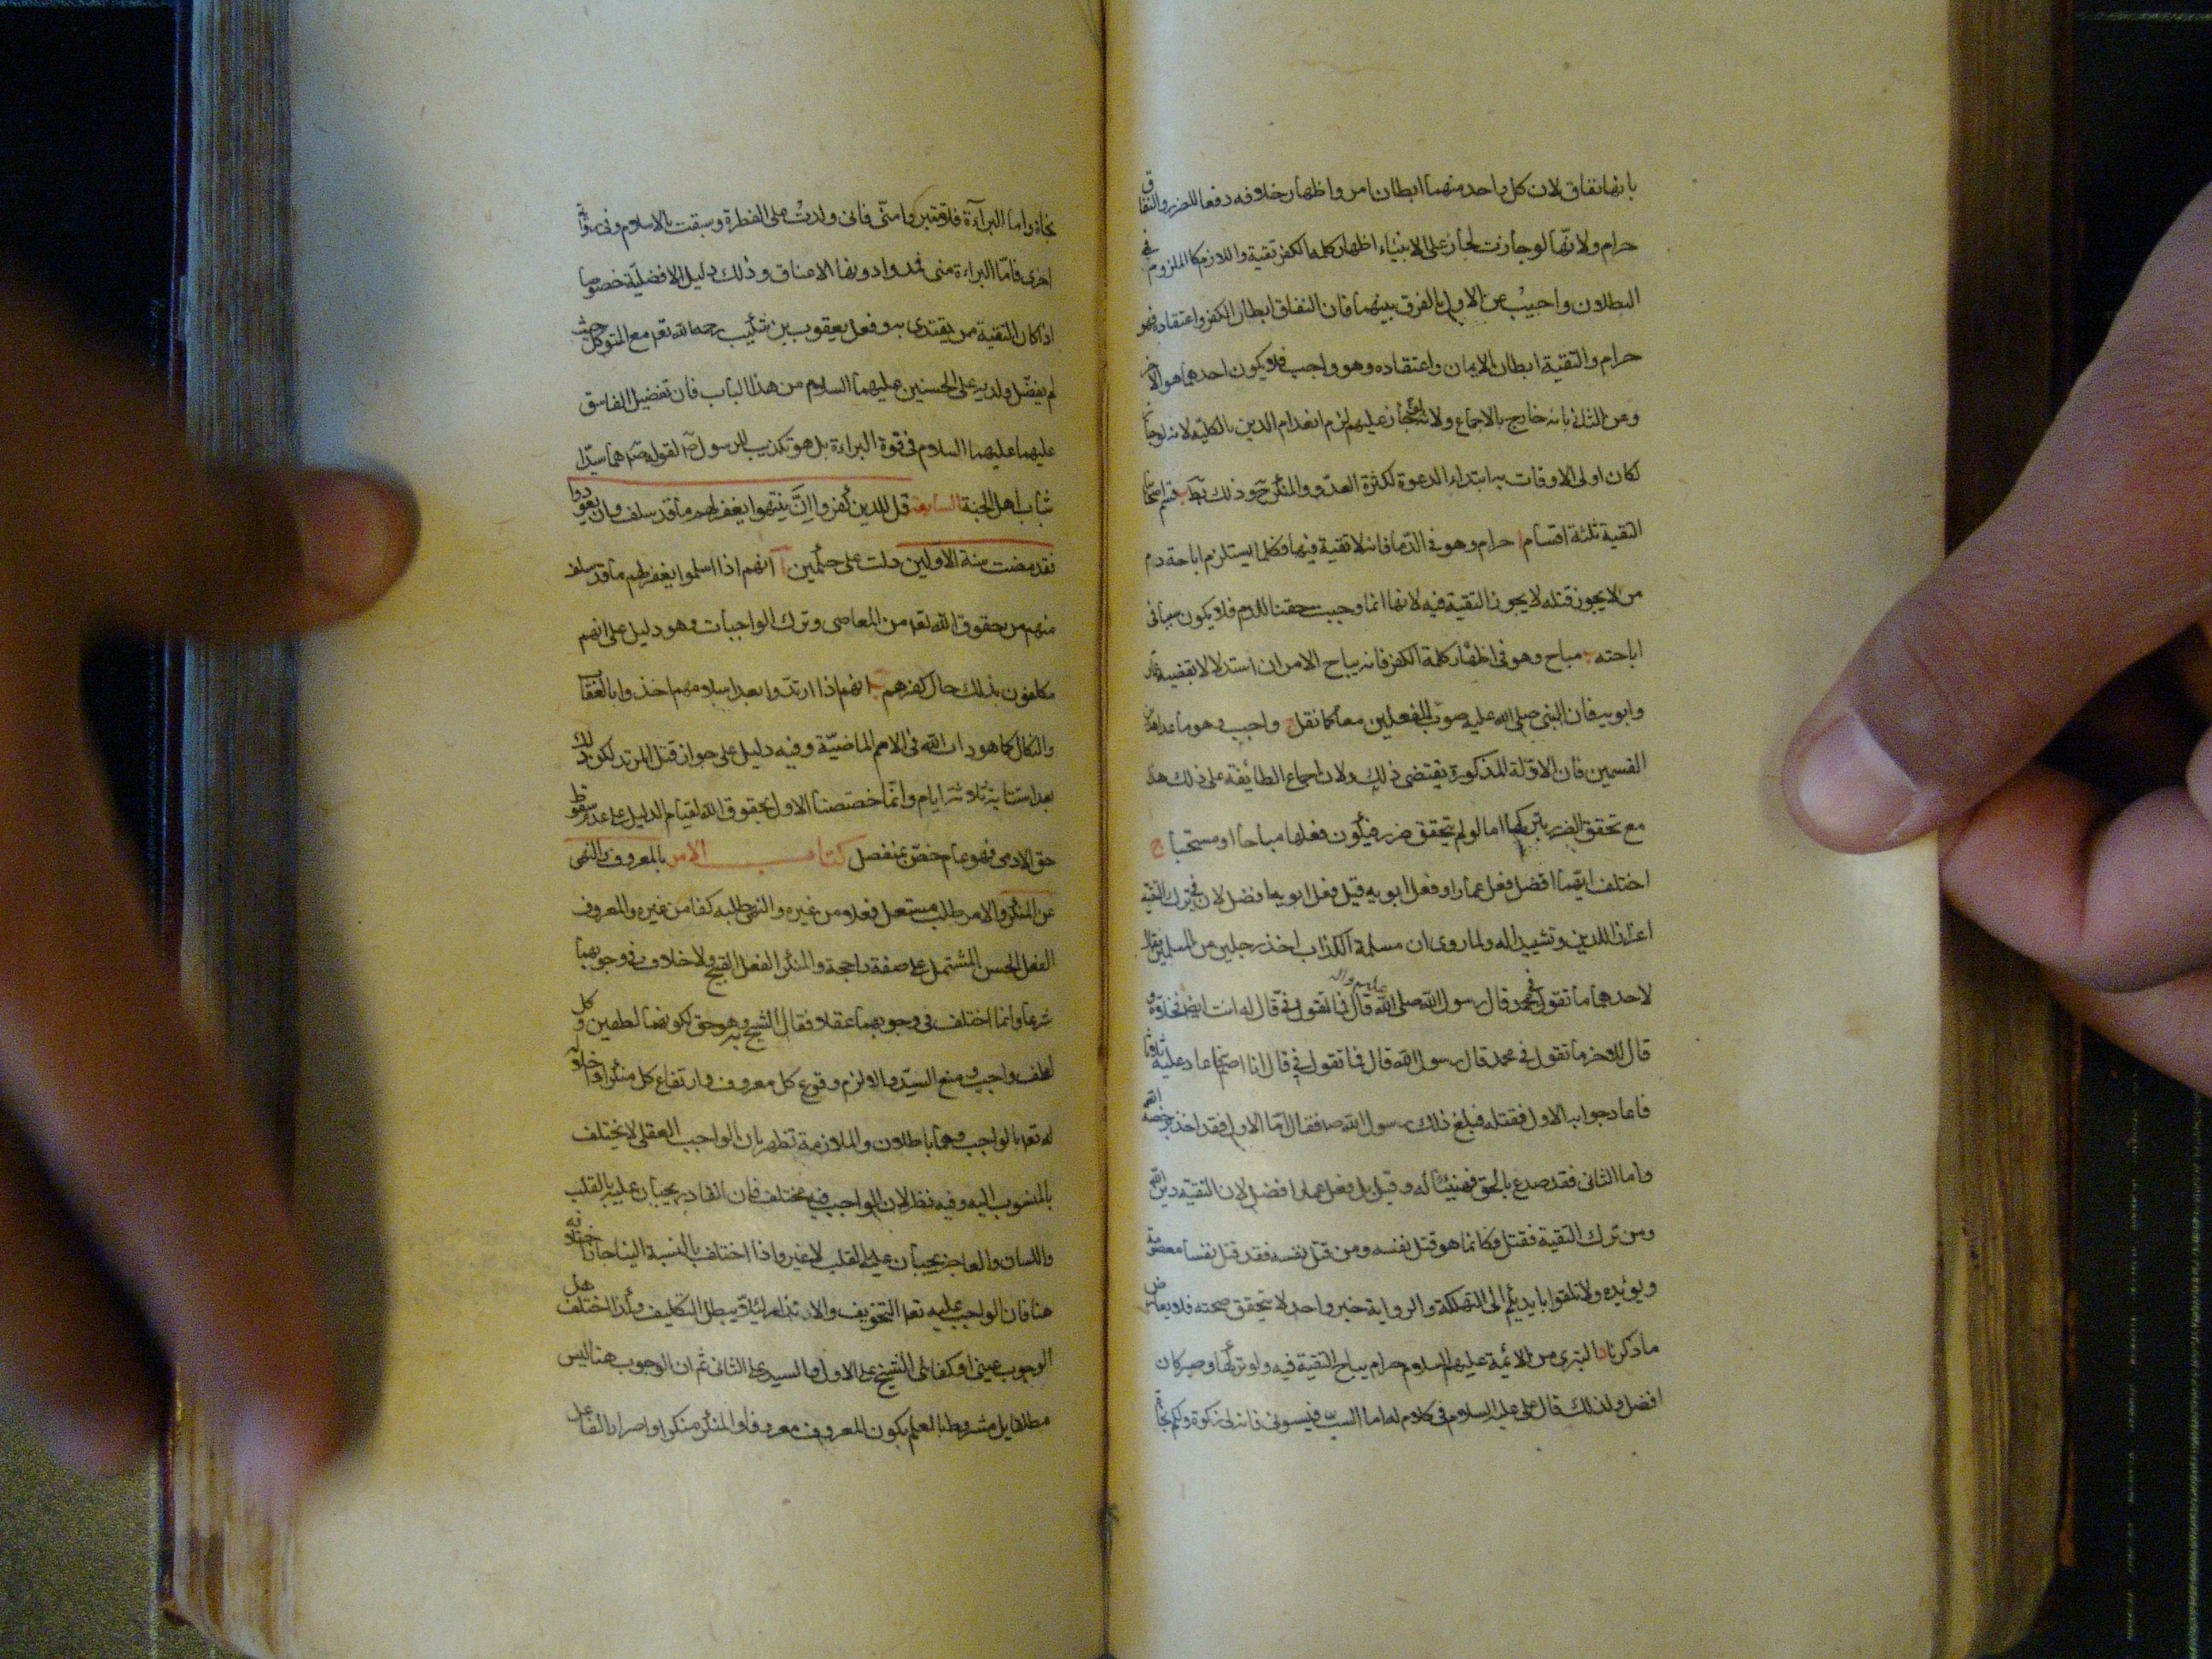 بانها نفاق لان كل واحد منهما ابطان امر واظهار خلافه دفعا للضرر والنفاق
حرام ولانها لو جازت لجاز على الانبياء اظهار كلمة الكفر تقية واللازم كالملزوم في
البطلان واجيب عن الاول بالفرق بينهما فان النفاق ابطان الكفر واعتقاده فهو
حرام والتقية ابطان الايمان واعتقاده وهو واجب فلا يكون احدهما هو الآخر
وعن الثاني بانه خارج بالاجماع ولانه لو جاز عليهم لزم انعدام الدين بالكلية لانه لو جاز
لكان اولى الاوقات به ابتداء الدعوة لكثرة العدو والمنكر ح وذلك بط ب قسم اصحابنا
التقية ثلثة اقسام ا حرام وهو في الدما فانه لا تقية فيها فكلما يستلزم اباحة دم
من لا يجوز قتله لا يجوز التقية فيه لانها انما وجبت حقنا للدم فلا يكون سببا في
اباحته ب مباح وهو في اظهار كلمة الكفر فانه يباح الامران استدلالا بقضية عمار
وابويه فان النبي صلى الله عليه صوب الفعلين معا كما نقل ج واجب وهو ما عدا هذين
القسمين فان الادلة المذكورة يقتضي ذلك ولان اجماع الطائفة على ذلك هذا
مع تحقق الضرر بتركها اما لو لم يتحقق ضرر فيكون فعلها مباحا او مستحبا ج
اختلف ايهما افضل فعل عمار او فعل ابويه قيل فعل ابويه افضل لان في ترك التقية
اعزازا للدين وتشييدا له ولما روى ان مسلمة الكذاب اخذ رجلين من المسلمين فقال
لاحدهما ما تقول في محمد قال رسول الله صلى الله عليه واله قال فما تقول في قال له انت ايض فخلاه و
قال للآخر ما تقول في محمد قال رسول الله قال فما تقول في قال انا اصم فاعاد عليه ثلاثا
فاعاد جوابه الاول فقتله فبلغ ذلك رسول الله ص فقال اما الاول فقد اخذ برخصة الله
واما الثاني فقد صدع بالحق فهنيئا له وقيل بل فعل عمار افضل لان التقية دين الله
ومن ترك التقية فقتل فكانما هو قتل نفسه ومن قتل نفسه فقد قتل نفسا معصومة
ويؤيده ولا تلقوا بايديكم الى التهلكة والرواية خبر واحد لا يتحقق صحته فلا يعارض
ما ذكرنا د التبري من الائمة عليهم السلام حرام يباح التقية فيه ولو تركها وصبر كان
افضل ولذلك قال على عليه السلام في كلام له اما السب فسبوني فانه لي زكوة ولكم نجاة
نجاة واما البراءة فلا تتبرءوا مني فاني ولدت على الفطرة وسبقت بالاسلام وفي رواية
اخرى فاما البراءة مني فمدوا دونها الاعناق وذلك دليل الافضلية خصوصا
اذا كان التقية ممن يقتدى به وفعل يعقوب بن شكيب رحمه الله تعه مع المتوكل حيث
لم يفضل ولديه على الحسنين عليهما السلام من هذا الباب فان تفضيل الفاسق
عليهما عليهما السلام في قوة البراءة بل هو تكذيب للرسول ص لقوله ص هما سيدا
شباب اهل الجنة السابعة قل للذين كفروا ان ينتهوا يغفر لهم ما قد سلف وان يعودوا
فقد مضت سنة الاولين دلت على حكمين ا انهم اذا اسلموا يغفر لهم ما قد سلف
منهم من حقوق الله تعه من المعاصي وترك الواجبات وهو دليل على انهم
مكلفون بذلك حال كفرهم ب انهم اذا ارتدوا بعد اسلامهم اخذوا بالعقاب
والنكال كما هو داب الله في الامم الماضية وفيه دليل على جواز قتل المرتد لكن ذلك
بعد استتابته ثلاثة ايام وانما خصصنا الاول بحقوق الله لقيام الدليل على عدم سقوط
حق الادمي فهو عام خص بمنفصل كتاب الامر بالمعروف والنهي
عن المنكر والامر طلب مستعل فعلا من غيره والنهي طلبه كفا من غيره والمعروف
الفعل الحسن المشتمل على صفة راجحة والمنكر الفعل القبيح ولا خلاف في وجوبهما
شرعا وانما اختلف في وجوبهما عقلا فقال الشيخ به وهو حق لكونهما لطفين وكل
لطف واجب ومنع السيد والا لزم وقوع كل معروف وارتفاع كل منكر او اخلاله
له تعه بالواجب وهما باطلان والملازمة تظهر بان الواجب العقلي لا يختلف
بالمنسوب اليه وفيه نظر لان الواجب فيه مختلف فان القادر يجبان عليه بالقلب
واللسان والعاجز يجبان عليه بالقلب لا غير واذا اختلف بالنسبة الينا جاز اختلافه
هنا فان الواجب عليه تعه التخويف والانذار لئلا يبطل التكليف ولذا اختلف هل
الوجوب عيني او كفائي الشيخ على الاول والسيد على الثاني ثم ان الوجوب هنا ليس
مطلقا بل مشروط بالعلم بكون المعروف معروفا والمنكر منكرا واصرار الفاعل